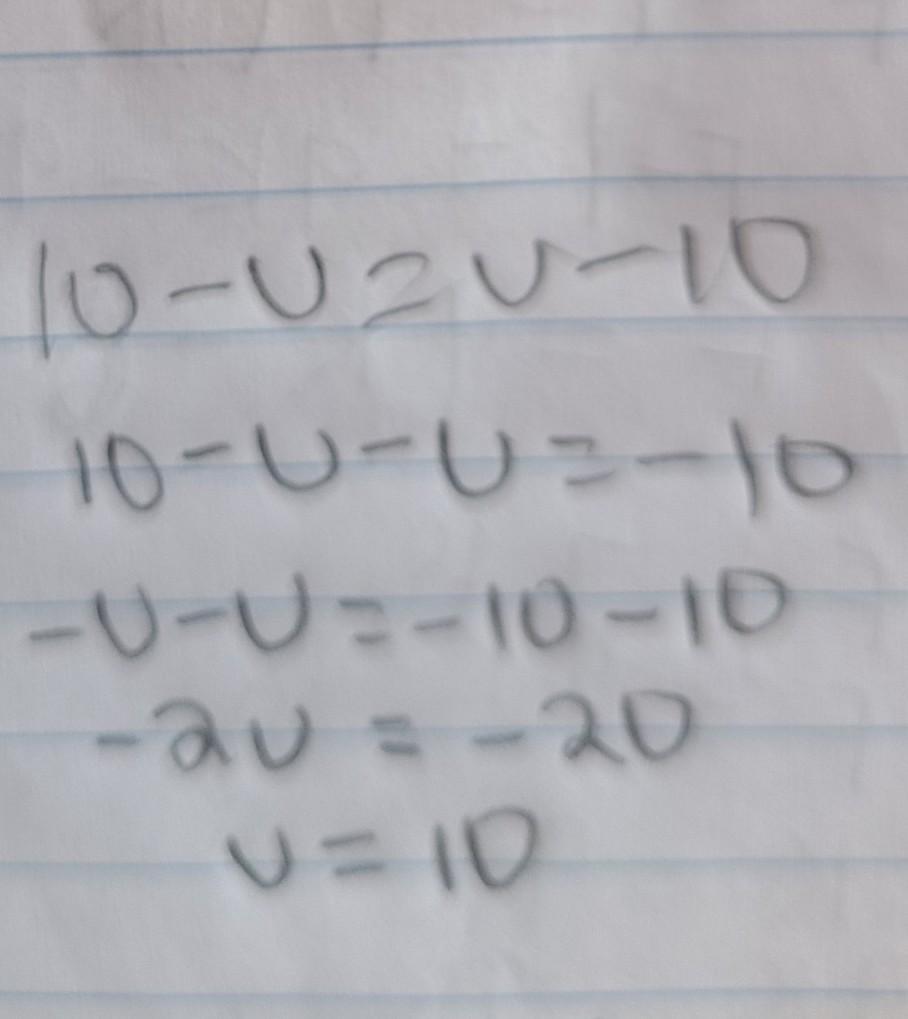 10-U=U-10
10-U-U=-10
-U-U=-10-10
-2U=-20
U=10